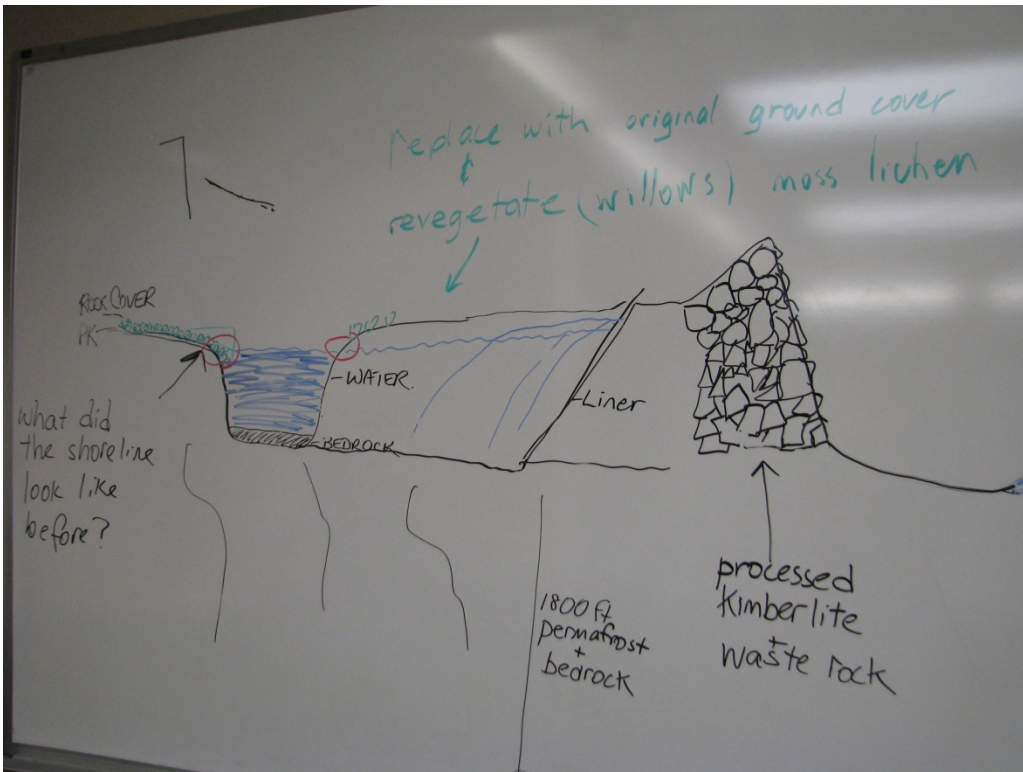 replace with original ground cover
&
revegetate (willows) moss lichen
ROCK COVER
PK
WATER.
Liner
BEDROCK
what did
the shoreline
look like
before?
1800 ft
permafrost
+
bedrock
processed
kimberlite
+
waste rock